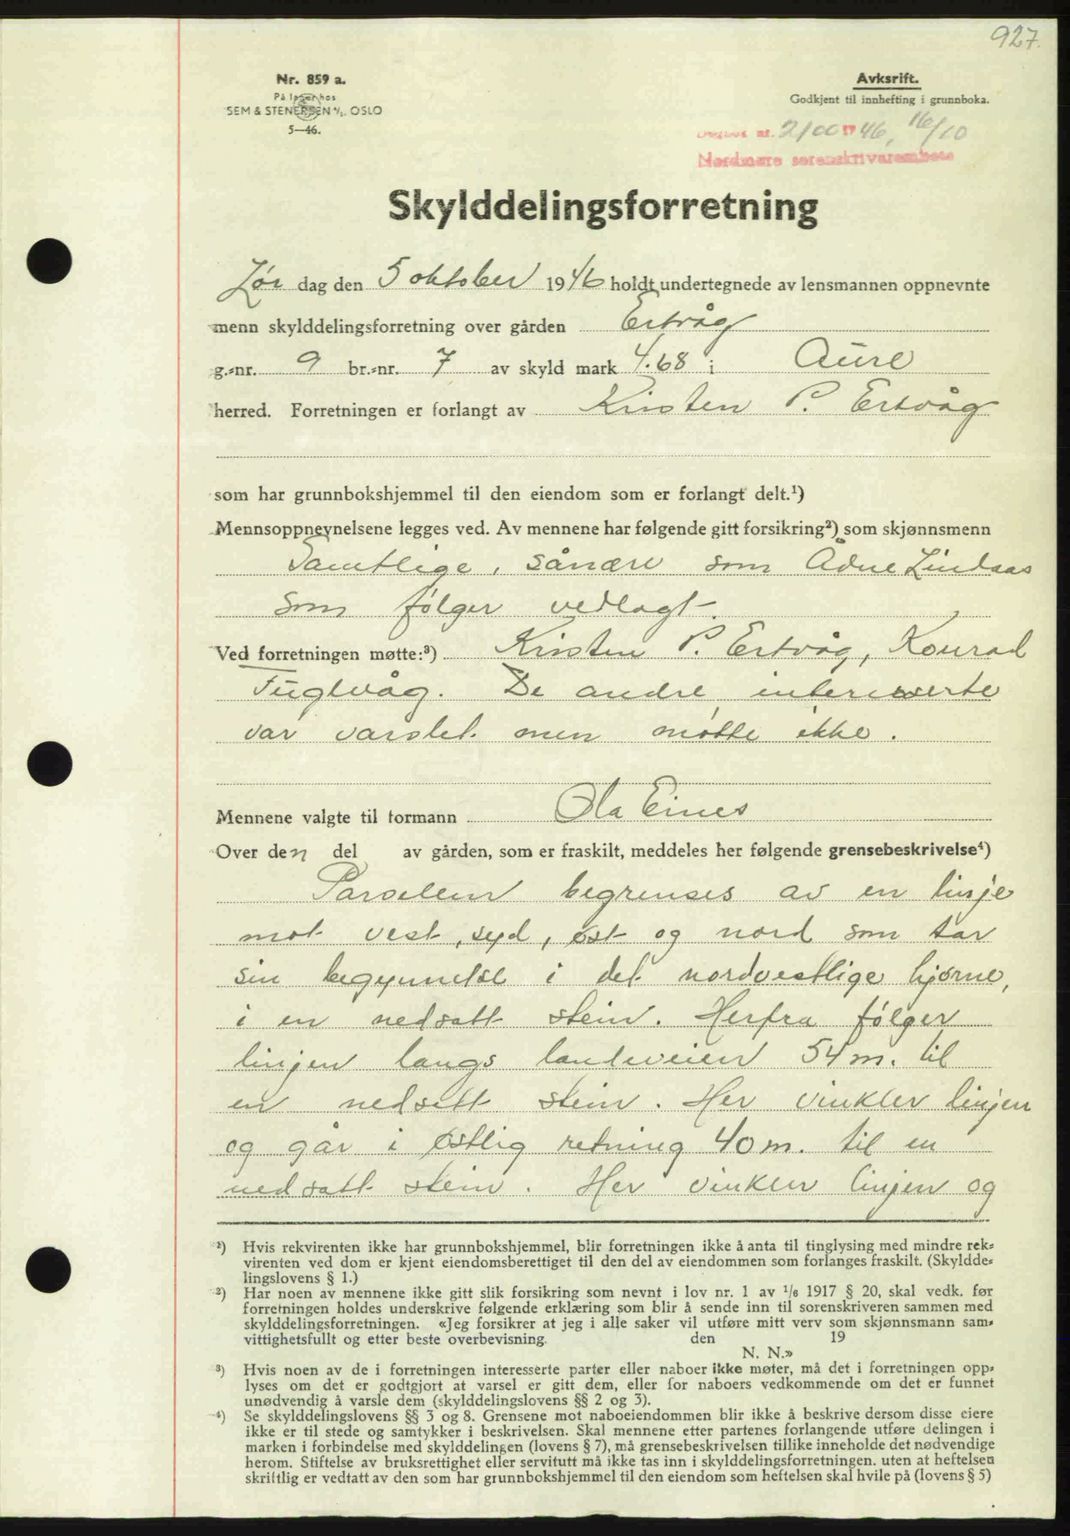 927.
Nr. 859 a.
På lager hos
SEM & STENERSEN A/S. OSLO
5—46.
Avksrift.
Godkjent til innhefting i grunnboka.
Dagbok nr. 2100 1946, 16/10
Nordmøre sorenskriverembete
Skylddelingsforretning
Lør dag den 5 oktober 1946 holdt undertegnede av lensmannen oppnevnte
menn skylddelingsforretning over gården Ertvåg
g.-nr. 9 br.-nr. 7 av skyld mark 4.68 i Aure
herred. Forretningen er forlangt av Kristen P. Ertvåg
som har grunnbokshjemmel til den eiendom som er forlangt delt.¹)
Mennsoppnevnelsene legges ved. Av mennene har følgende gitt forsikring²) som skjønnsmenn
Samtlige, sånære som Ådne Lindaas
som følger vedlagt.
Ved forretningen møtte:³) Kristen P. Ertvåg, Konrad
Fuglvåg. De andre interesserte
var varslet men møtte ikke.
Mennene valgte til formann Ola Eines
Over den del av gården, som er fraskilt, meddeles her følgende grensebeskrivelse⁴)
Parselen begrenses av en linje
mot vest, syd, øst og nord som tar
sin begynnelse i det nordvestlige hjørne,
i en nedsatt stein. Herfra følger
linjen langs landeveien 54 m. til
en nedsatt stein. Her vinkler linjen
og går i østlig retning 40 m. til en
nedsatt stein. Her vinkler linjen og
¹) Hvis rekvirenten ikke har grunnbokshjemmel, blir forretningen ikke å anta til tinglysing med mindre rek-
virenten ved dom er kjent eiendomsberettiget til den del av eiendommen som forlanges fraskilt. (Skyldde-
lingslovens § 1.)
²) Har noen av mennene ikke gitt slik forsikring som nevnt i lov nr. 1 av 1/6 1917 § 20, skal vedk. før
forretningen holdes underskrive følgende erklæring som blir å sende inn til sorenskriveren sammen med
skylddelingsforretningen. «Jeg forsikrer at jeg i alle saker vil utføre mitt verv som skjønnsmann sam-
vittighetsfullt og etter beste overbevisning. den 19
N. N.»
³) Hvis noen av de i forretningen interesserte parter eller naboer ikke møter, må det i forretningen opp-
lyses om det er godtgjort at varsel er gitt dem, eller for naboers vedkommende om det er funnet
unødvendig å varsle dem (skylddelingslovens §§ 2 og 3).
⁴) Se skylddelingslovens §§ 3 og 8. Grensene mot naboeiendommen blir ikke å beskrive dersom disse eiere
ikke er til stede og samtykker i beskrivelsen. Skal mennene etter partenes forlangende utføre delingen i
marken i forbindelse med skylddelingen (lovens § 7), må grensebeskrivelsen tillike inneholde det nødvendige
herom. Stiftelse av bruksrettighet eller servitutt må ikke tas inn i skylddelingsforretningen. uten at heftelsen
skriftlig er vedtatt av den som har grunnbokshjemmel til den eiendom som heftelsen skal hvile på (lovens § 5)